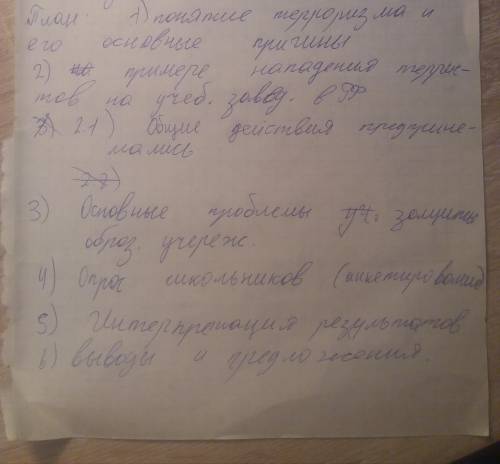 План: 1) понятие терроризма и
его основные причины
2) примере нападения терри-
тов на учеб. завед. в РФ
2.1) Общие действия предприне-
мались
2.2)
3) Основные проблемы уч. защиты
образ. учереж.
4) Опрос школьников (анкетирование)
5) Интерпретация результатов
6) выводы и предложения.